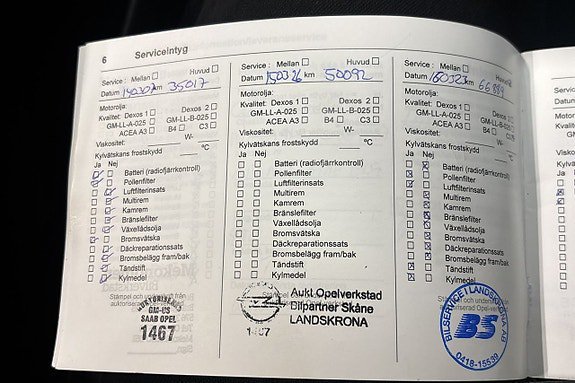 6 Serviceintyg
Service : Mellan Huvud
Datum 140307 km 35017
Motorolja:
Kvalitet: Dexos 1 Dexos 2
GM-LL-A-025 GM-LL-B-025
ACEA A3 B4 C3
Viskositet: W-
Kylvätskans frostskydd °C
Ja Nej
Batteri (radiofjärrkontroll)
Pollenfilter
Luftfilterinsats
Multirem
Kamrem
Bränslefilter
Växellådsolja
Bromsvätska
Däckreparationssats
Bromsbelägg fram/bak
Tändstift
Kylmedel
AUKTORISERAD
GM-US
SAAB OPEL
1467
Service : Mellan Huvud
Datum 150326 km 50092
Motorolja:
Kvalitet: Dexos 1 Dexos 2
GM-LL-A-025 GM-LL-B-025
ACEA A3 B4 C3
Viskositet: W-
Kylvätskans frostskydd °C
Ja Nej
Batteri (radiofjärrkontroll)
Pollenfilter
Luftfilterinsats
Multirem
Kamrem
Bränslefilter
Växellådsolja
Bromsvätska
Däckreparationssats
Bromsbelägg fram/bak
Tändstift
Kylmedel
Aukt.Opelverkstad
Bilpartner Skåne
LANDSKRONA
Service : Mellan Huvud
Datum 160323 km 66889
Motorolja:
Kvalitet: Dexos 1 Dexos 2
GM-LL-A-025 GM-LL-B-025
ACEA A3 B4 C3
Viskositet: W-
Kylvätskans frostskydd °C
Ja Nej
Batteri (radiofjärrkontroll)
Pollenfilter
Luftfilterinsats
Multirem
Kamrem
Bränslefilter
Växellådsolja
Bromsvätska
Däckreparationssats
Bromsbelägg fram/bak
Tändstift
Kylmedel
BILSERVICE I LANDSKRONA AB
BS
0418-15539